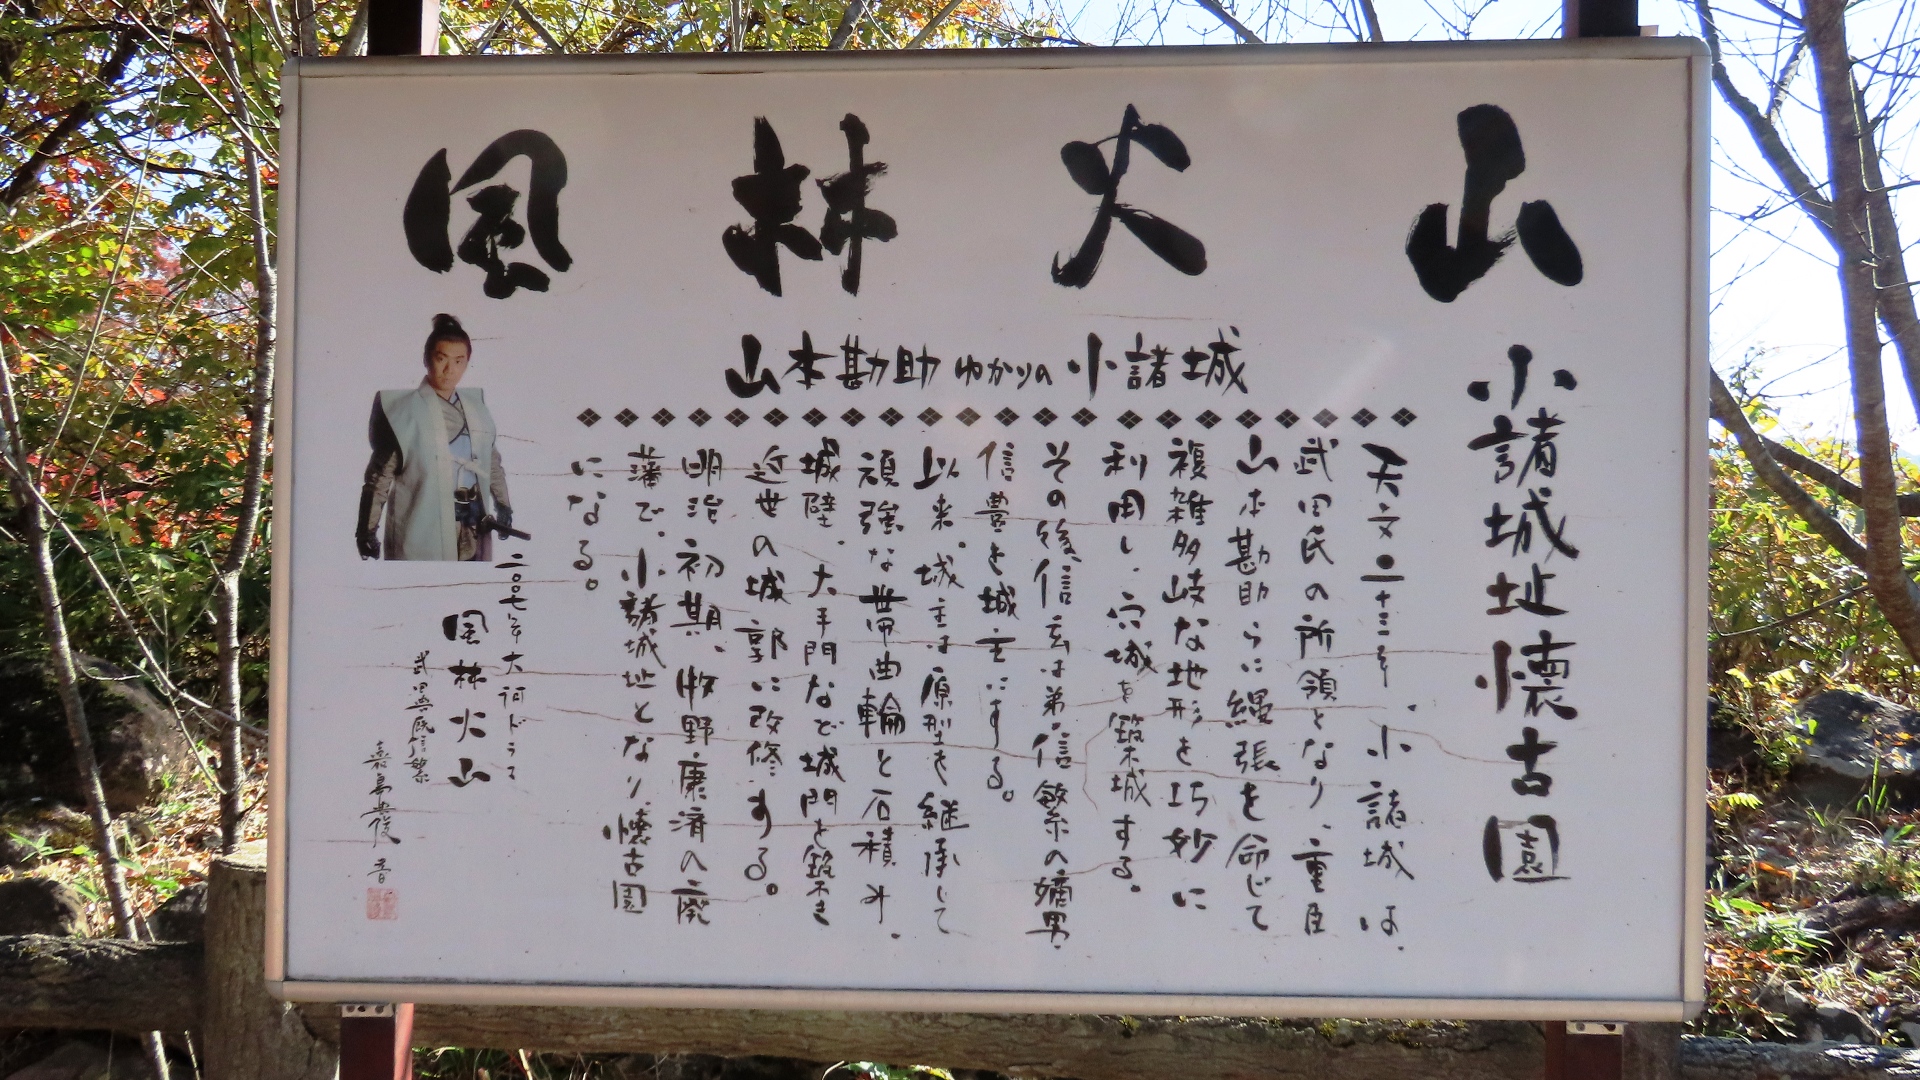 風林火山
小諸城址懐古園
山本勘助ゆかりの小諸城
天文二十三年、小諸城は、
武田氏の所領となり、重臣
山本勘助らに縄張を命じて
複雑多岐な地形を巧妙に
利用し、穴城を築城する。
その後信玄は弟信繁の嫡男、
信豊を城主にする。
以来、城主は原型を継承して
頑強な帯曲輪と石積み、
城壁、大手門など城門を築き
近世の城郭に改修する。
明治初期、牧野康済の廃
藩で、小諸城址となり、懐古園
になる。
二〇〇七年大河ドラマ
風林火山
武田典厩信繁
嘉島典俊